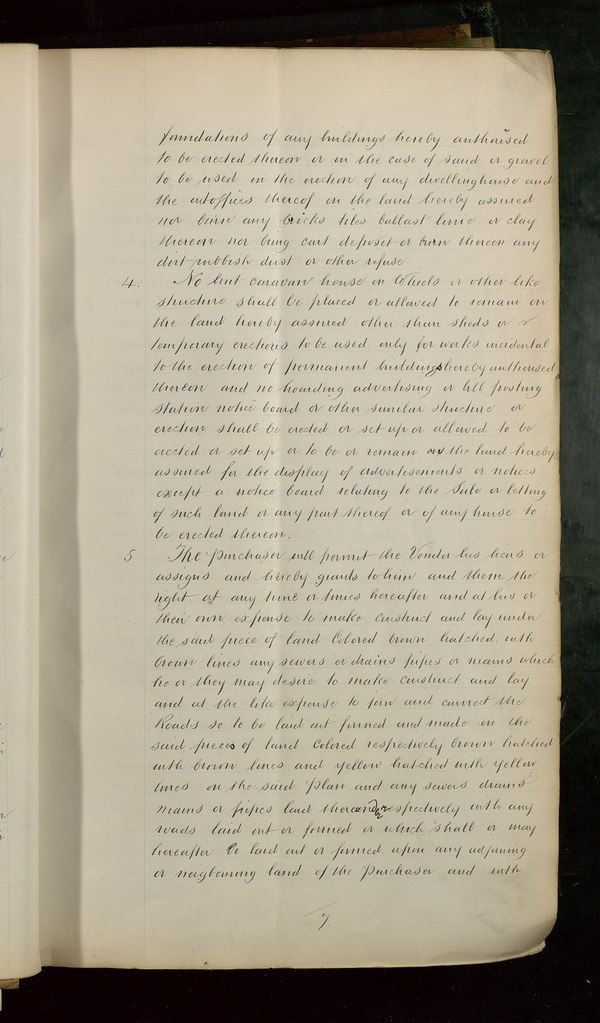 foundations of any buildings hereby authorised
to be erected thereon or in the case of sand or gravel
to be used in the erection of any dwellinghouse and
the outoffices thereof on the land hereby assured
nor burn any bricks tiles ballast lime or clay
thereon nor bring cart deposit or burn thereon any
dirt rubbish dust or other refuse
4. No tent caravan house on Wheels or other like
structure shall be placed or allowed to remain on
the land hereby assured other than sheds or
temporary erections to be used only for works incidental
to the erection of permanent buildings hereby authorised
thereon and no hoarding advertising or bill posting
station notice board or other similar structure or
erection shall be erected or set up or allowed to be
erected or set up or to be or remain on the land hereby
assured for the display of advertisements or notices
except a notice board relating to the Sale or letting
of such land or any part thereof or of any house to
be erected thereon.
5 The Purchaser will permit the Vendor his heirs or
assigns and hereby grants to him and them the
right at any time or times hereafter and at his or
their own expense to make construct and lay under
the said piece of land Colored brown hatched with
brown lines any sewers or drains pipes or mains which
he or they may desire to make construct and lay
and at the like expense to join and connect the
Roads so to be laid out formed and made on the
said pieces of land Colored respectively brown hatched
with brown lines and yellow hatched with yellow
lines on the said Plan and any sewers drains
mains or pipes laid thereunder respectively with any
roads laid out or formed or which shall or may
hereafter be laid out or formed upon any adjoining
or neighbouring land of the Purchaser and with
7.